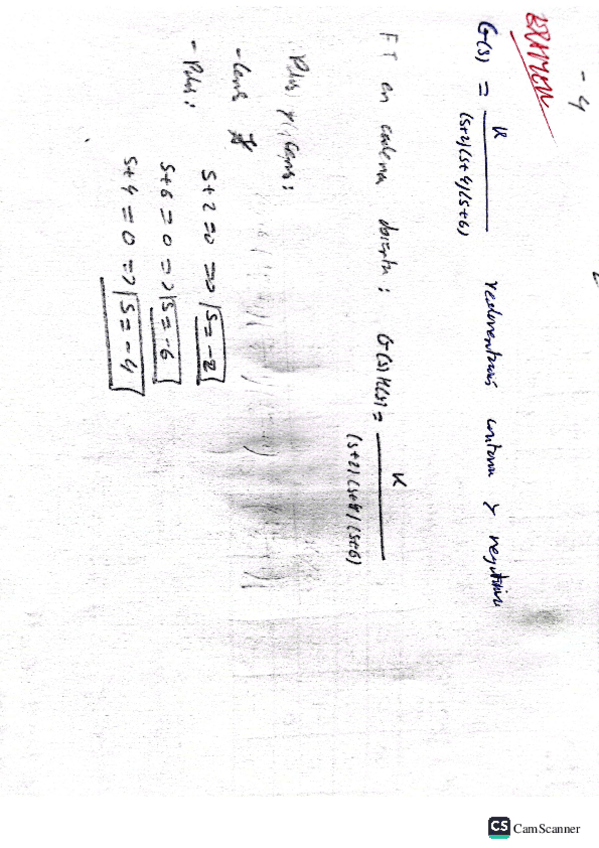 - 4
EXAMEN
G(s) = K / (s+2)(s+4)(s+6) realimentación unitaria y negativa
FT en cadena abierta: G(s)H(s) = K / (s+2)(s+4)(s+6)
Polos y ceros:
- Ceros ∄
- Polos:
s+2=0 => s=-2
s+6=0 => s=-6
s+4=0 => s=-4
CS CamScanner